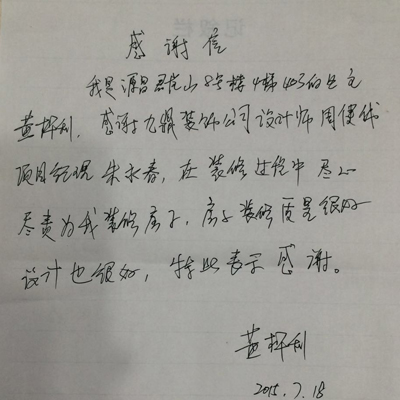 感谢信
我是源昌君龙山8号楼4梯403的业主
黄桦利，感谢九鼎装饰公司设计师周俊代
项目经理朱永春，在装修过程中尽心
尽责为我装修房子，房子装修质量很好
设计也很好，特此表示感谢。
黄桦利
2015.7.18